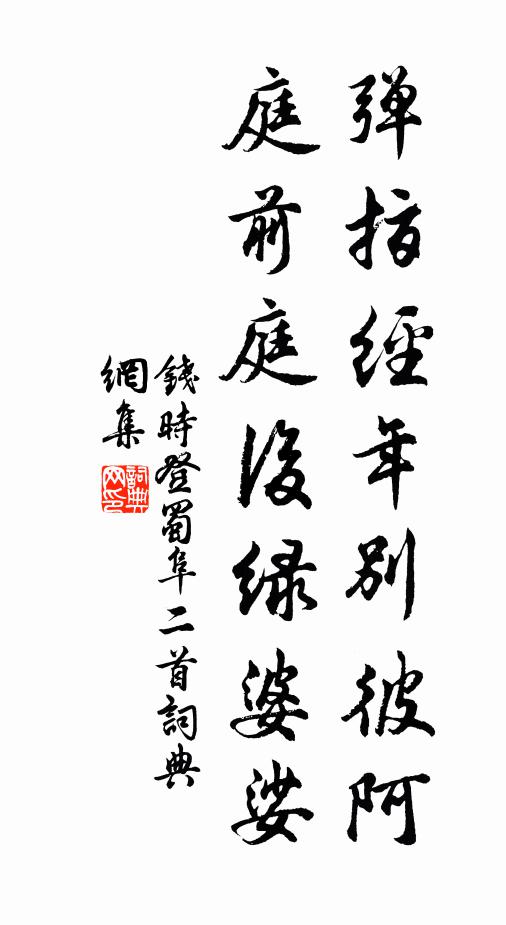 弹指經年别彼阿
庭前庭後緑婆娑
錢時登蜀阜二首詞典
網集
詞典网印